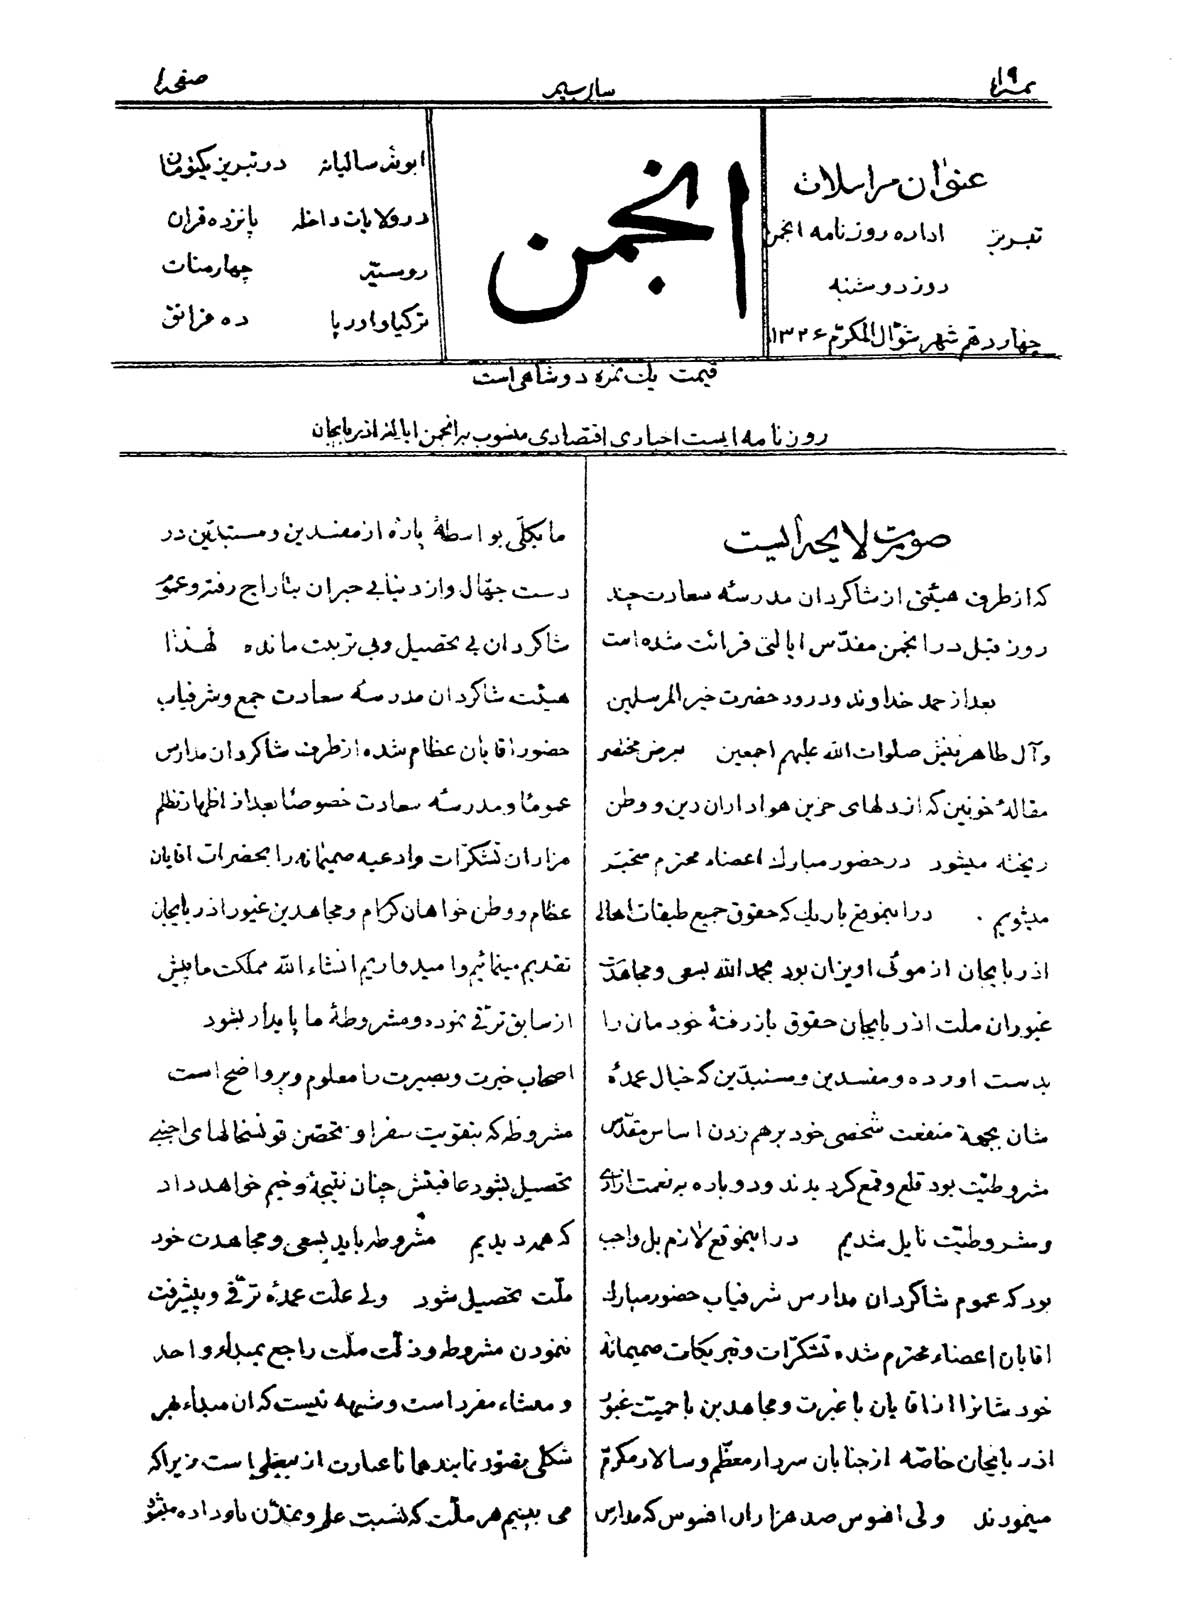 نمره ۱۹
سال سیم
صفحه ۱
عنوان مراسلات
تبریز اداره روزنامه انجمن
روز دوشنبه
چهاردهم شهر شوال المکرم ۱۳۲۶
انجمن
ابونه سالیانه در تبریز یکتومان
در ولایات داخله پانزده قران
روسیه چهار منات
ترکیا و اورپا ده فرانق
قیمت یک نمره دو شاهی است
روزنامه ایست اخباری اقتصادی منسوب بر انجمن ایالتی اذربایجان
صورت لایحه ایست
که از طرف هیئتی از شاکردان مدرسهٔ سعادت چند
روز قبل در انجمن مقدّس ایالتی قرائت شده است
بعد از حمد خداوند و درود حضرت خیر المرسلین
و آل طاهرینش صلوات الله علیهم اجمعین بعرض مختصر
مقالهٔ خونین که از دلهای حزین هواداران دین و وطن
ریخته میشود در حضور مبارک اعضاء محترم
میشویم . در اینموقع باریک که حقوق جمیع طبقات اهالی
اذربایجان از موئی اویزان بود بحمد الله بسعی و مجاهدت
غیوران ملت اذربایجان حقوق بازرفتهٔ خودمان را
بدست اورده و مفسدین و مستبدّین که خیال عمدهٔ
شان بجههٔ منفعت شخصی خود بر هم زدن اساس مقدّس
مشروطیّت بود قلع و قمع کردیدند و دوباره به نعمت ازادی
و مشروطیّت نایل شدیم در اینموقع لازم بل واجب
بود که عموم شاکردان مدارس شرفیاب حضور مبارک
اقایان اعضاء محترم شده تشکرات و تبریکات صمیمانهٔ
خودشانرا از اقایان با غیرت و مجاهدین با حمیت غیور
اذربایجان خاصّه از جنابان سردار معظّم و سالار مکرّم
مینمودند ولی افسوس صد هزاران افسوس که مدارس
ما بکلّی بواسطهٔ پارهٔ از مفسدین و مستبدّین در
دست جهّال و از دنیا بی خبران بتاراج رفته و عموم
شاکردان بی تحصیل و بی تربیت مانده لهذا
هیئت شاکردان مدرسهٔ سعادت جمع و شرفیاب
حضور اقایان عظام شده از طرف شاکردان مدارس
عموماً و مدرسهٔ سعادت خصوصاً بعد از اظهار تظلم
هزاران تشکرات و ادعیه صمیمانه را بحضرات اقایان
عظام و وطن خواهان کرام و مجاهدین غیور اذربایجان
تقدیم مینمائیم و امیدواریم انشاء الله مملکت ما بیش
از سابق ترقی نموده و مشروطهٔ ما پایدار بشود
اصحاب خبرت و بصیرت را معلوم و پر واضح است
مشروطه که بتقویت سفرا و تحصّن قونسخالهای اجنبی
تحصیل بشود عاقبتش چنان نتیجهٔ وخیم خواهد داد
که همه دیدیم مشروطه باید بسعی و مجاهدت خود
ملّت تحصیل شود ولی علّت عمدهٔ ترّقی و پیشرفت
ننمودن مشروطه و ذلّت ملّت راجع بمبداء واحد
و منشاء مفرد است و شبهه نیست که ان مبداء بهر
شکلی بتصّور نمایند همانا عبارت از بیعلمی است زیرا که
می بینیم هر ملّت که نسبت علم و تمدّن باو داده میشود